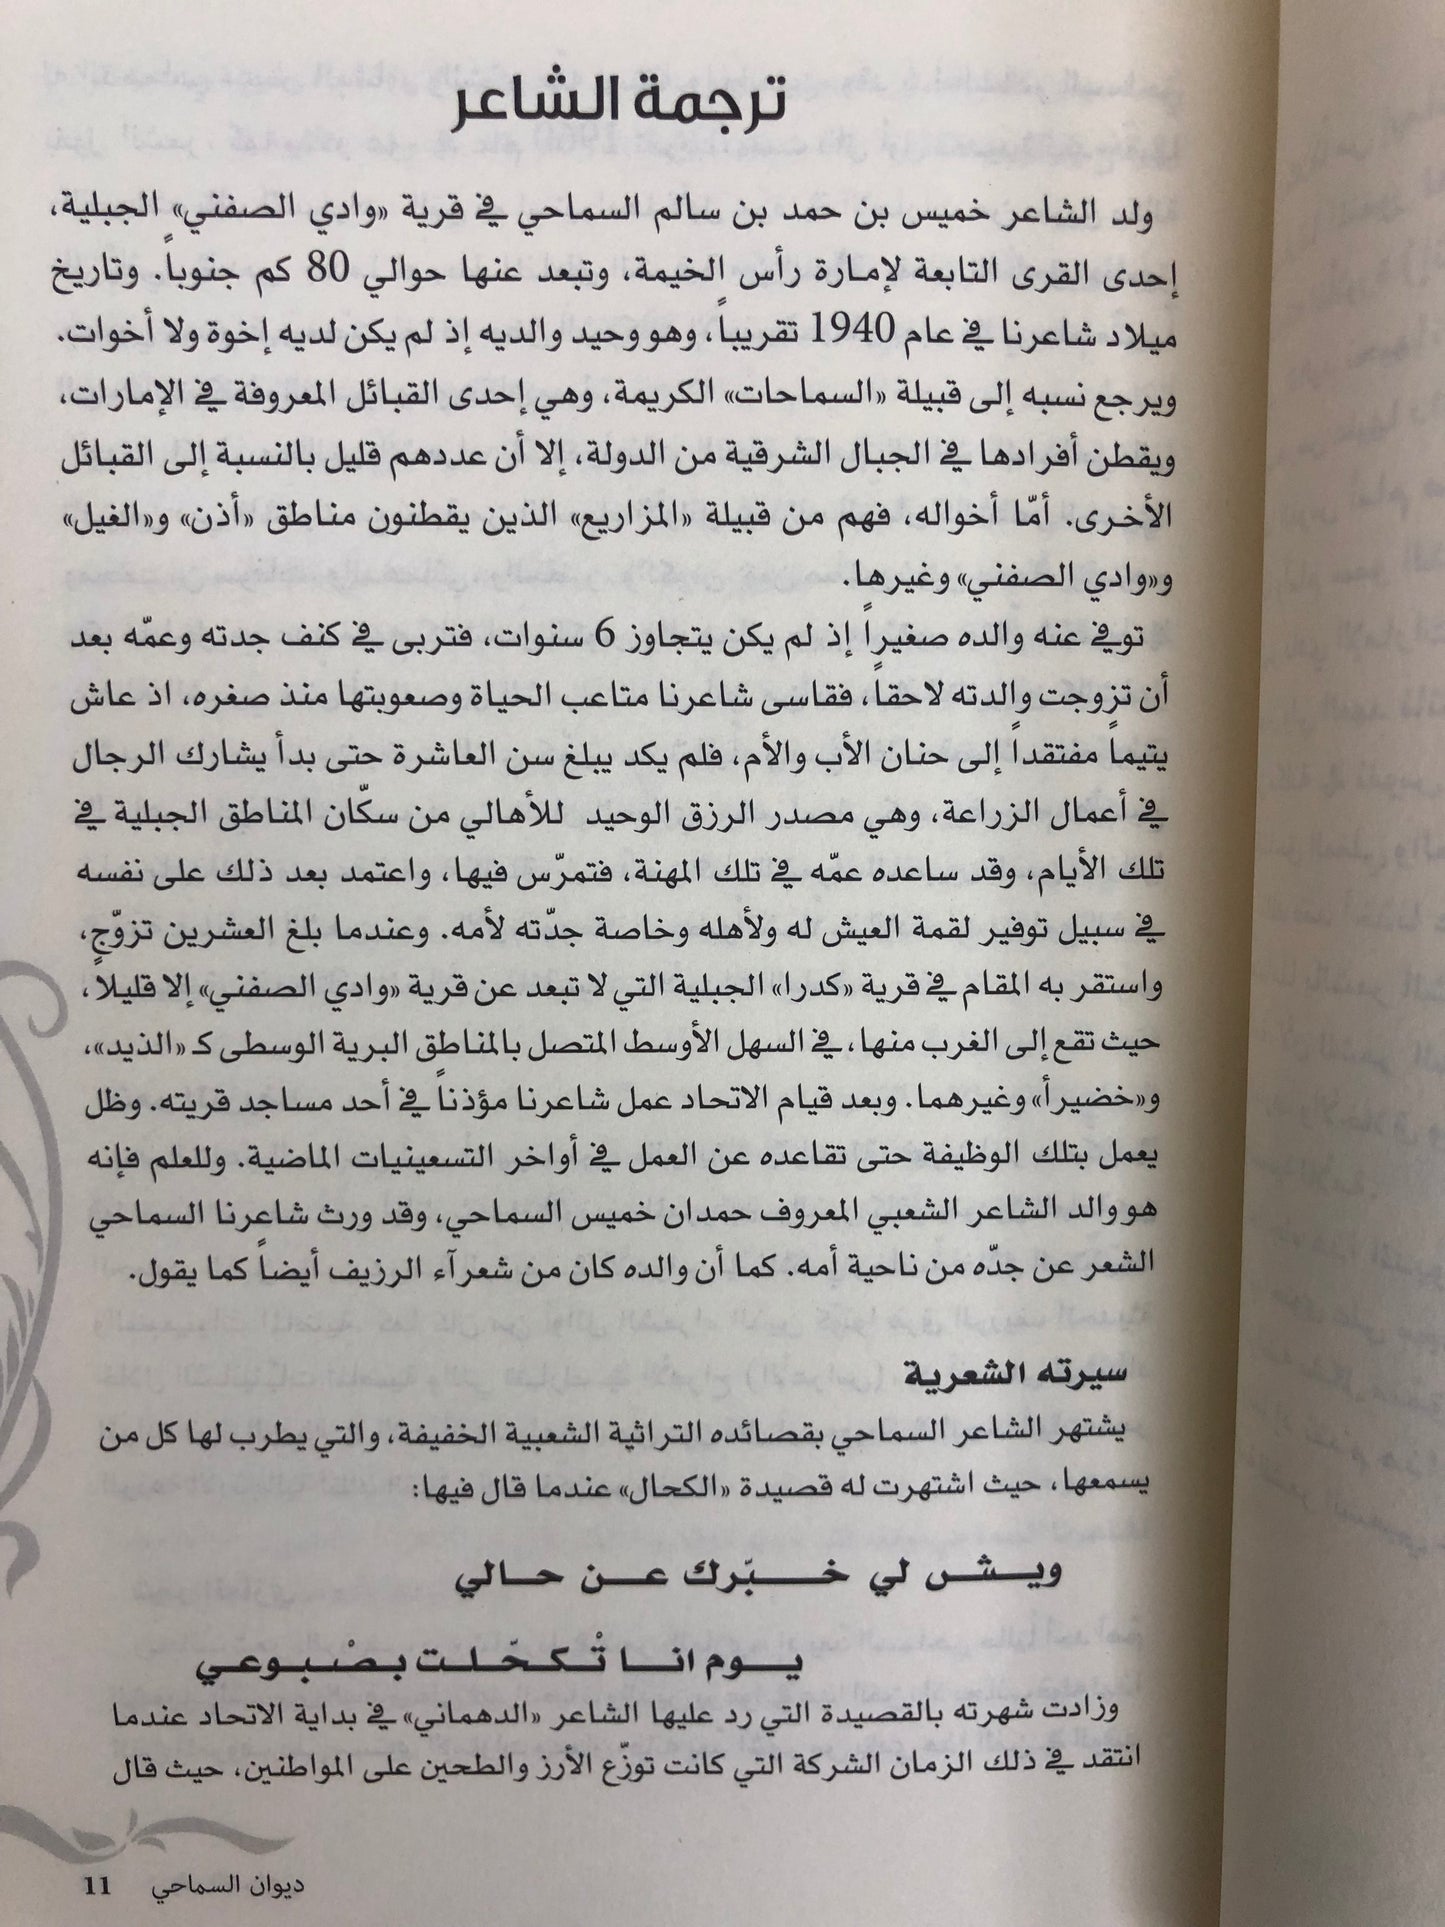 ترجمة الشاعر
ولد الشاعر خميس بن حمد بن سالم السماحي في قرية «وادي الصفني» الجبلية،
إحدى القرى التابعة لإمارة رأس الخيمة، وتبعد عنها حوالي 80 كم جنوباً. وتاريخ
ميلاد شاعرنا في عام 1940 تقريباً، وهو وحيد والديه إذ لم يكن لديه إخوة ولا أخوات.
ويرجع نسبه إلى قبيلة «السماحات» الكريمة، وهي إحدى القبائل المعروفة في الإمارات،
ويقطن أفرادها في الجبال الشرقية من الدولة، إلا أن عددهم قليل بالنسبة إلى القبائل
الأخرى. أمّا أخواله، فهم من قبيلة «المزاريع» الذين يقطنون مناطق «أذن» و«الغيل»
و«وادي الصفني» وغيرها.
توفي عنه والده صغيراً إذ لم يكن يتجاوز 6 سنوات، فتربى في كنف جدته وعمّه بعد
أن تزوجت والدته لاحقاً، فقاسى شاعرنا متاعب الحياة وصعوبتها منذ صغره، اذ عاش
يتيماً مفتقداً إلى حنان الأب والأم، فلم يكد يبلغ سن العاشرة حتى بدأ يشارك الرجال
في أعمال الزراعة، وهي مصدر الرزق الوحيد للأهالي من سكّان المناطق الجبلية في
تلك الأيام، وقد ساعده عمّه في تلك المهنة، فتمرّس فيها، واعتمد بعد ذلك على نفسه
في سبيل توفير لقمة العيش له ولأهله وخاصة جدّته لأمه. وعندما بلغ العشرين تزوّج،
واستقر به المقام في قرية «كدرا» الجبلية التي لا تبعد عن قرية «وادي الصفني» إلا قليلاً،
حيث تقع إلى الغرب منها، في السهل الأوسط المتصل بالمناطق البرية الوسطى كـ «الذيد»،
و«خضيرأ» وغيرهما. وبعد قيام الاتحاد عمل شاعرنا مؤذناً في أحد مساجد قريته. وظل
يعمل بتلك الوظيفة حتى تقاعده عن العمل في أواخر التسعينيات الماضية. وللعلم فإنه
هو والد الشاعر الشعبي المعروف حمدان خميس السماحي، وقد ورث شاعرنا السماحي
الشعر عن جدّه من ناحية أمه. كما أن والده كان من شعرآء الرزيف أيضاً كما يقول.
سيرته الشعرية
يشتهر الشاعر السماحي بقصائده التراثية الشعبية الخفيفة، والتي يطرب لها كل من
يسمعها، حيث اشتهرت له قصيدة «الكحال» عندما قال فيها:
ويـــش لي خـــبّرك عـــن حـــالي
يـــوم انـــا تْـكـحّـلـت بـصْـبـوعـي
وزادت شهرته بالقصيدة التي رد عليها الشاعر «الدهماني» في بداية الاتحاد عندما
انتقد في ذلك الزمان الشركة التي كانت توزّع الأرز والطحين على المواطنين، حيث قال
ديوان السماحي 11